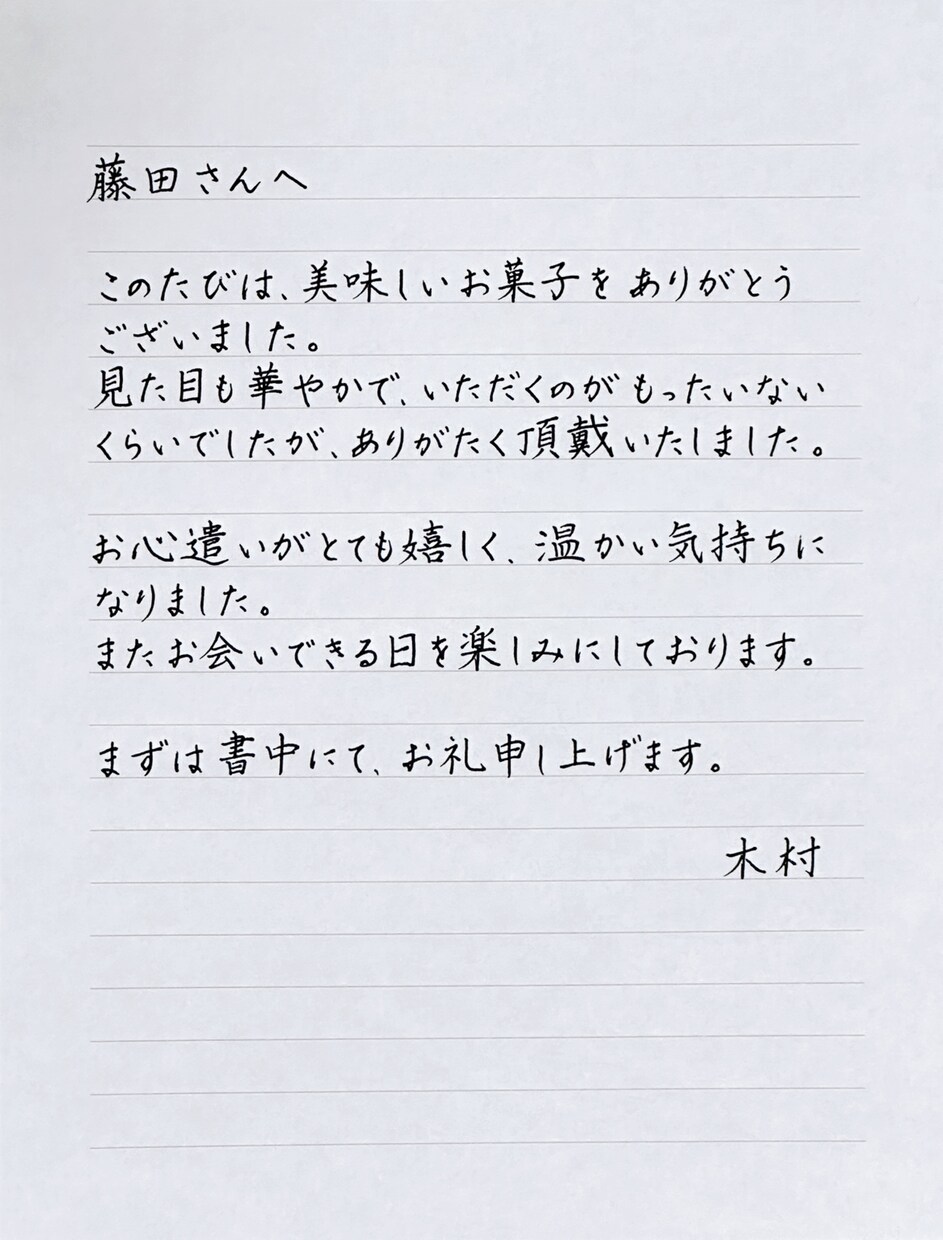 藤田さんへ
このたびは、美味しいお菓子をありがとう
ございました。
見た目も華やかで、いただくのがもったいない
くらいでしたが、ありがたく頂戴いたしました。
お心遣いがとても嬉しく、温かい気持ちに
なりました。
またお会いできる日を楽しみにしております。
まずは書中にて、お礼申し上げます。
木村